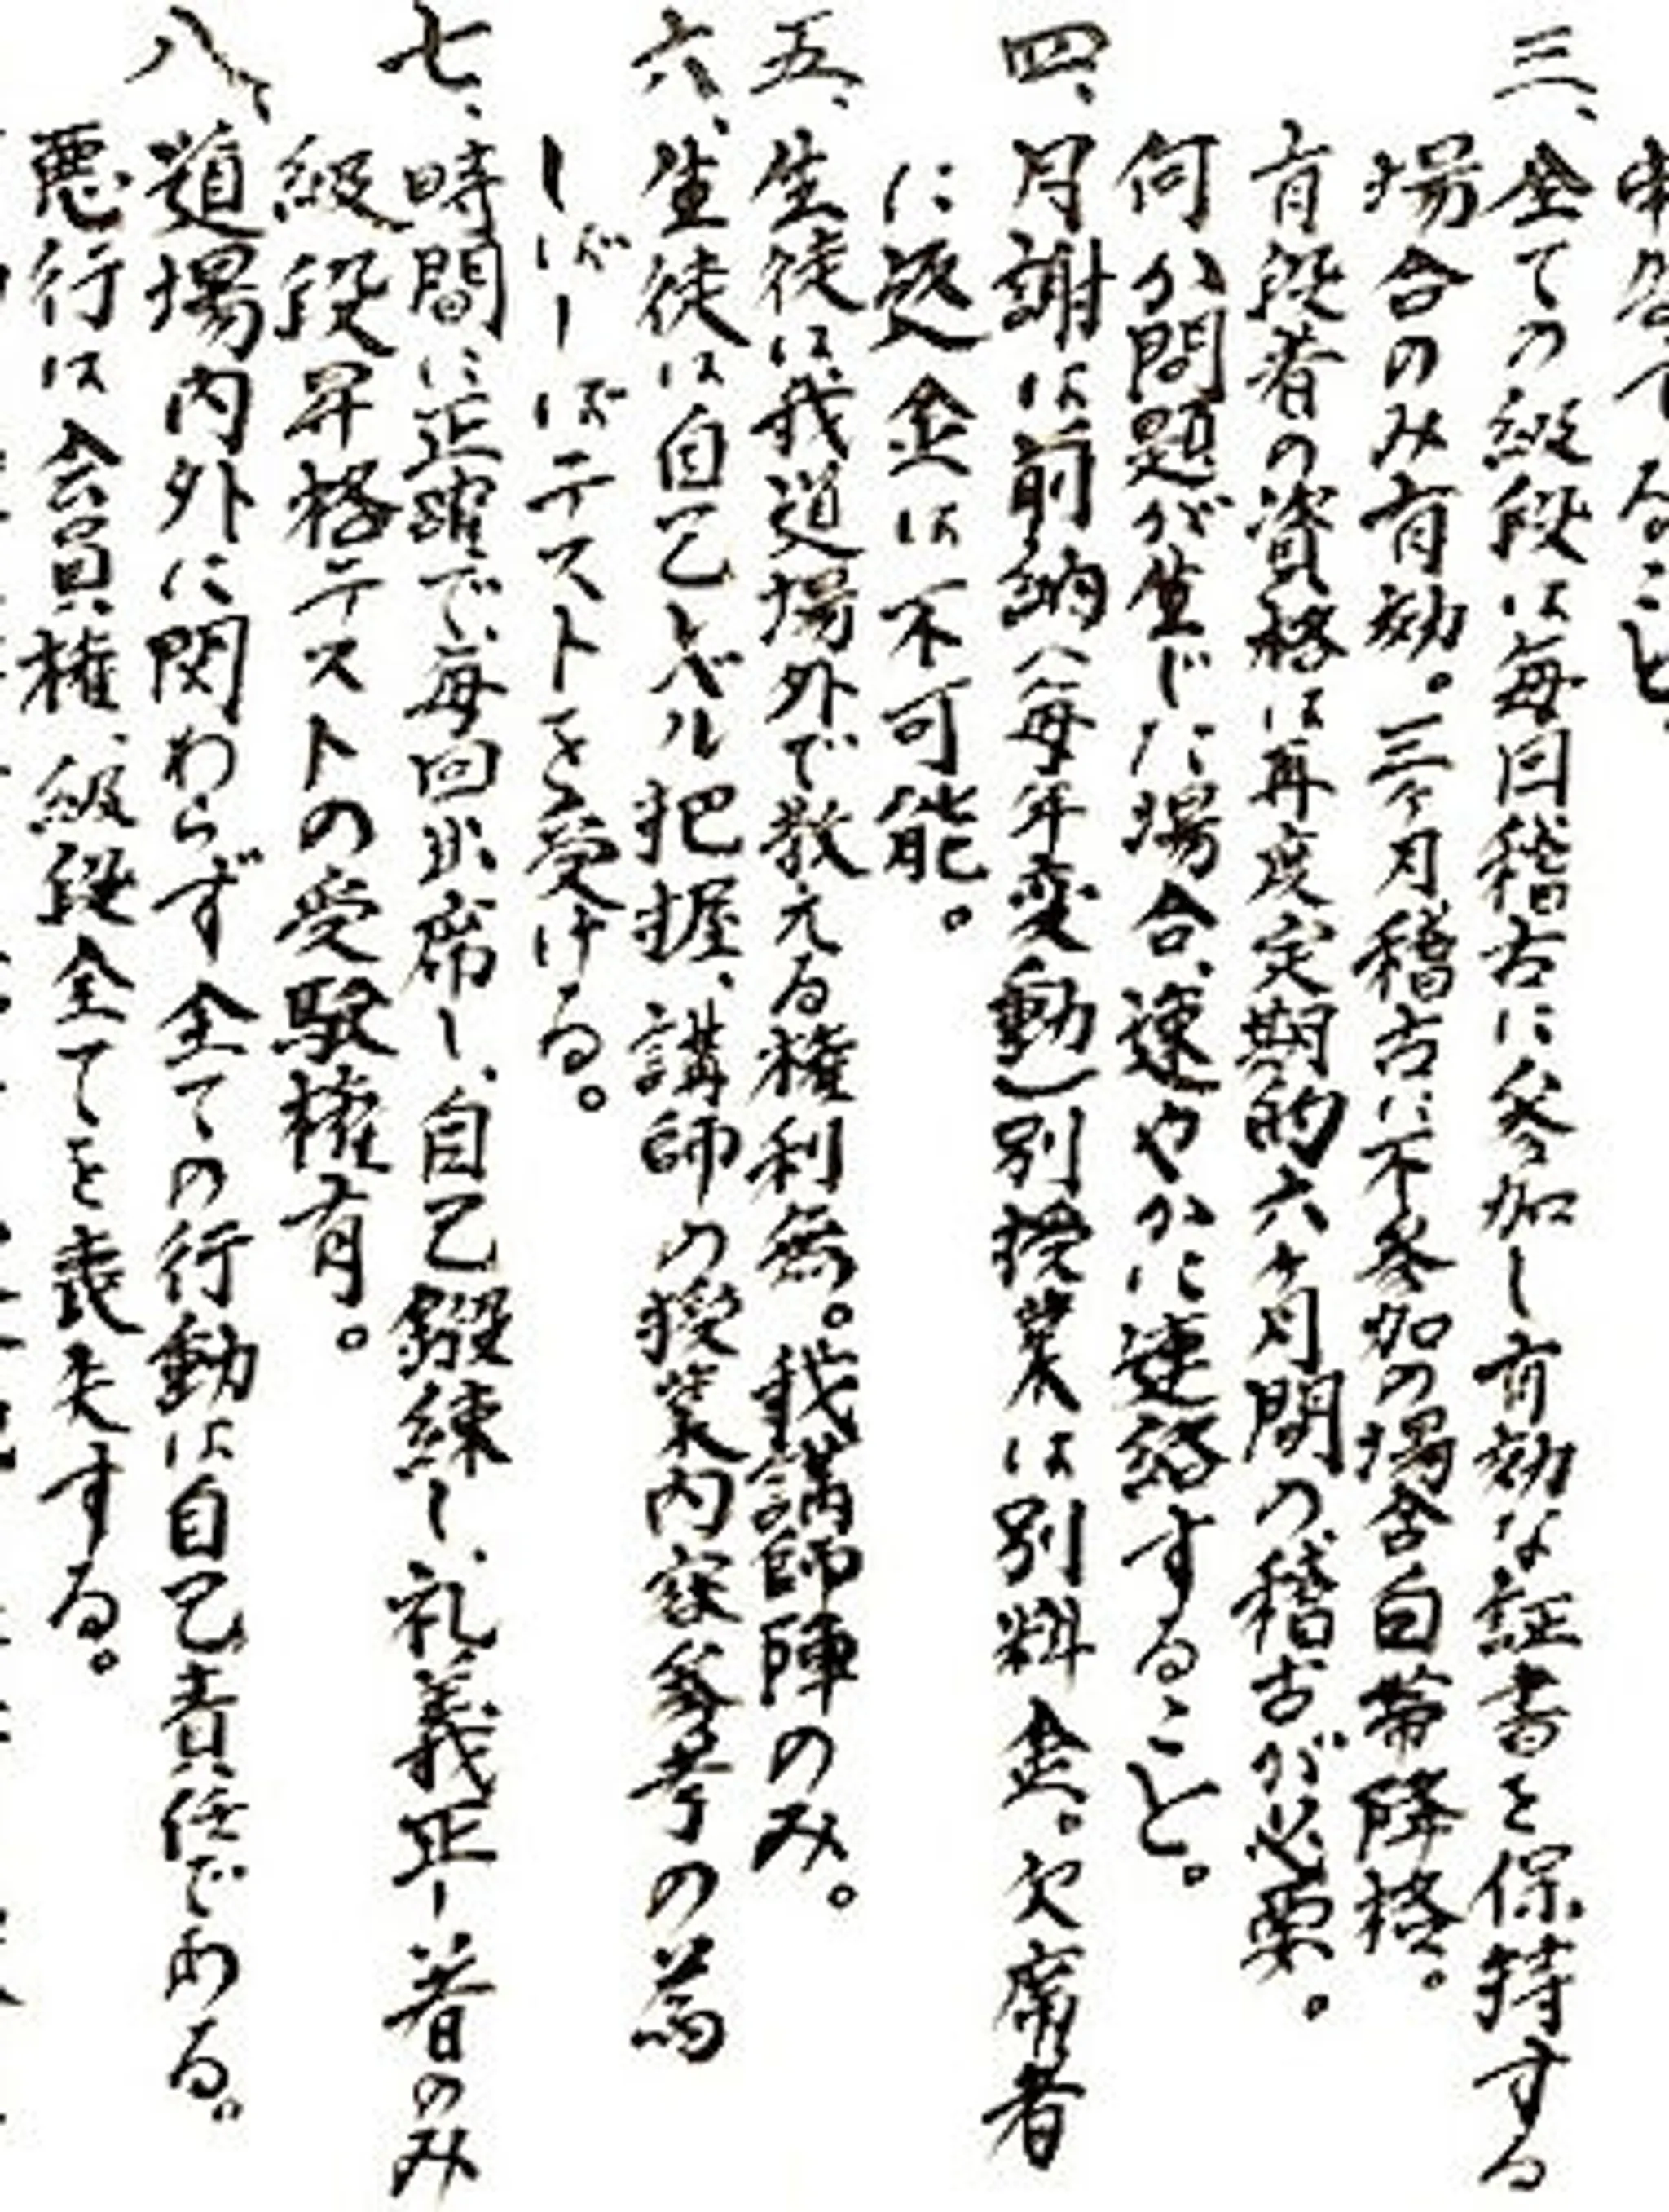 ること。
三、全ての級段は毎回稽古に参加し有効な証書を保持する
場合のみ有効。三ヶ月稽古に不参加の場合白帯降格。
有段者の資格は再度定期的六ヶ月間の稽古が必要。
何か問題が生じた場合、速やかに連絡すること。
四、月謝は前納(毎年変動)別授業は別料金。欠席者
に返金は不可能。
五、生徒は我道場外で教える権利無。我講師陣のみ。
六、生徒は自己レベル把握、講師の授業内容参考の為
しばしばテストを受ける。
七、時間に正確で、毎回出席し、自己鍛練し、礼義正し者のみ
級段昇格テストの受験権有。
八、道場内外に関わらず全ての行動は自己責任である。
悪行は会員権、級段全てを喪失する。